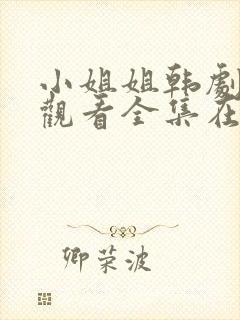 小姐姐韩劇
觀看全集在
卿荣波